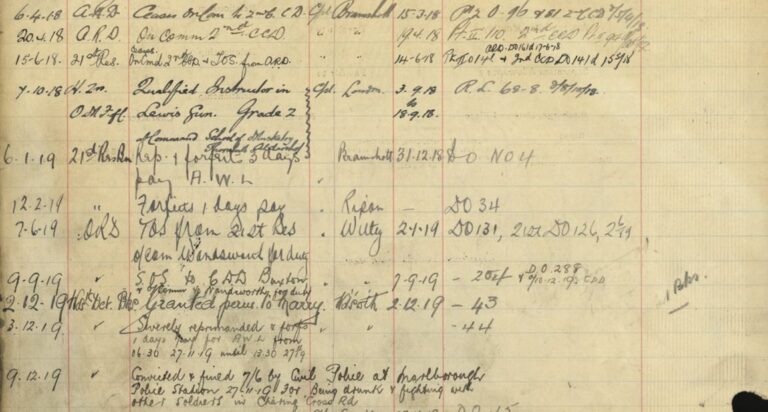 6-4-18 A.R.D Ceases on Com to 2nd C.C.D. Cpl Bramshott 15-3-18
20.4.18 A.R.D. On Comm 2nd CCD " " 19.4.18 Pt II 110
15-6-18 21st Res. Ceases On Cmd 2nd CCD & TOS from ARD. " " 14-6-18 Pt II DO 141 & 2nd CCD DO 141 d 15/6/18
ARD. DO 161 d 17-6-18
7-10-18 H.2rs. Qualified Instructor in Cpl. London. 3-9-18 R.L. 68-8.
O.M.F.of C. Lewis Gun. Grade 2 to 18-9-18.
at Command School of Musketry
6-1-19 21st Res Bn Rep. & forfeit 3 days Bramshott 31-12-18 DO No 4
pay A.W.L
12-2-19 " Forfeits 1 days pay " Ripon - DO 34
7-6-19 ORD TOS from 21st Res " Witley 2-1-19 DO 131, 21st DO 126,
o/com Wandsworth for duty
9-9-19 " SOS to CDD Buxton " 7-9-19 - 204 & D.O. 288 d/10-12-19 CDD
& o/comm to Wandsworth for duty
1 Pcks.
2-12-19 Granted perm. to Marry. 2-12-19 - 43
3-12-19 " Severely reprimanded & forfts " " - 44
1 days pay for A.W.L from
06.30 27-11-19 until 13.30 27/11/19
9-12-19 " Convicted & fined 7/6 by Civil Police at Marlborough
Police Station 27-11-19 for Being drunk & fighting with
other Soldiers in Charing Cross Rd
DO 15